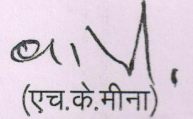 (एच.के.मीना)